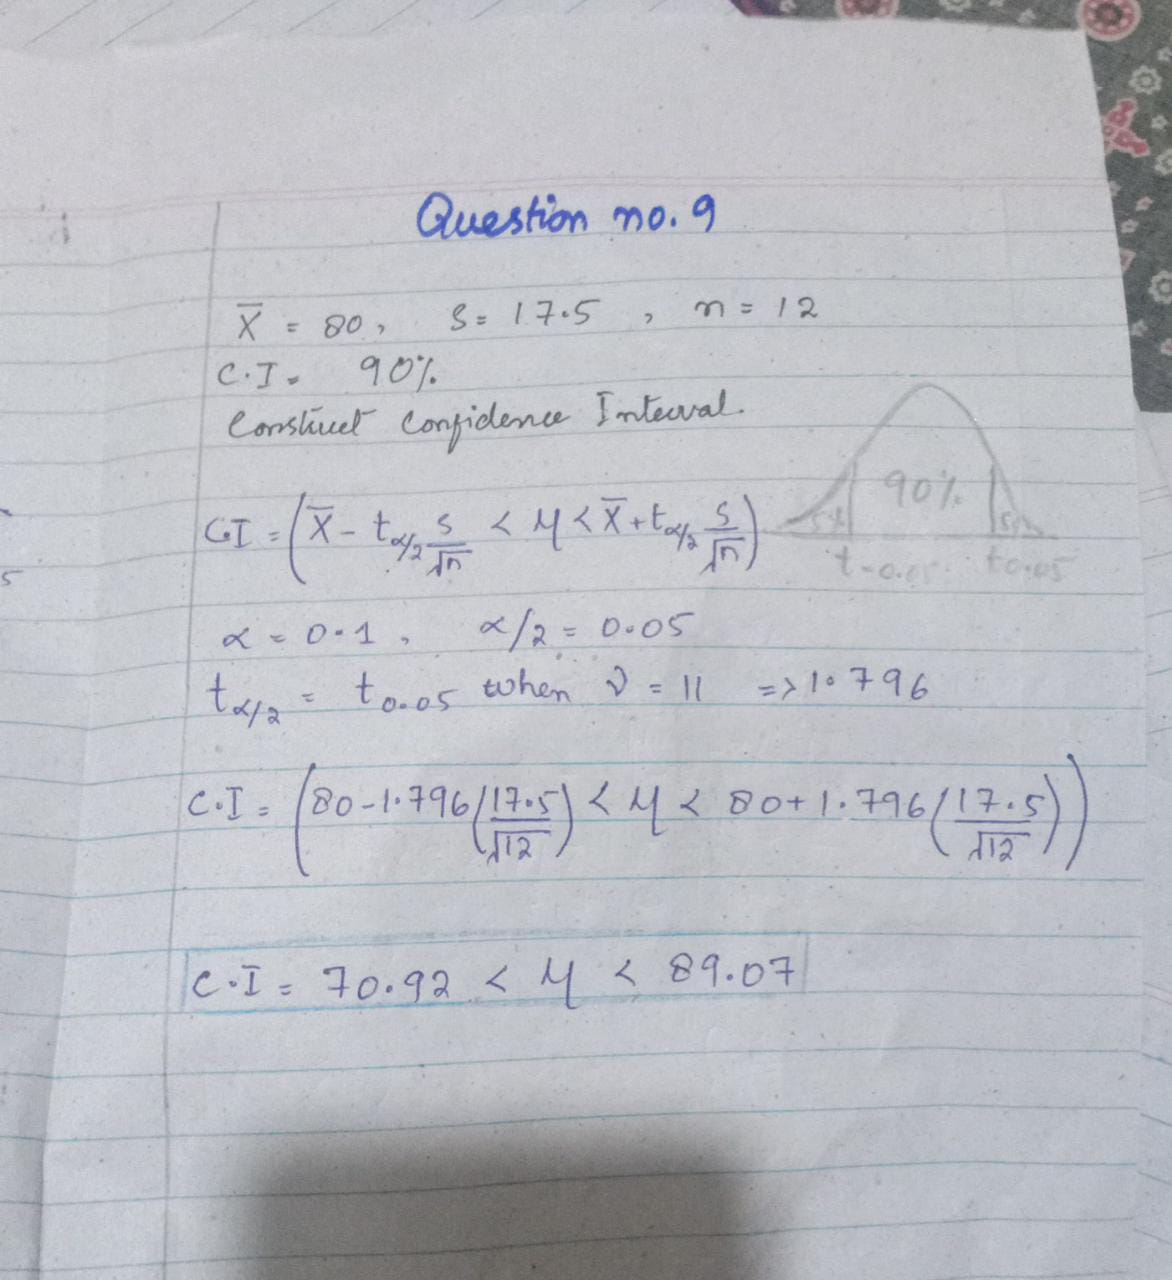 Question no. 9
X̄ = 80, S = 17.5, n = 12
C.I = 90%
Construct Confidence Interval.
90%
C.I = (X̄ - tα/2 S/√n < μ < X̄ + tα/2 S/√n)
t-0.05 t0.05
α = 0.1, α/2 = 0.05
tα/2 = t0.05 when ν = 11 => 1.796
C.I = (80-1.796(17.5/√12) < μ < 80+1.796(17.5/√12))
C.I = 70.92 < μ < 89.07